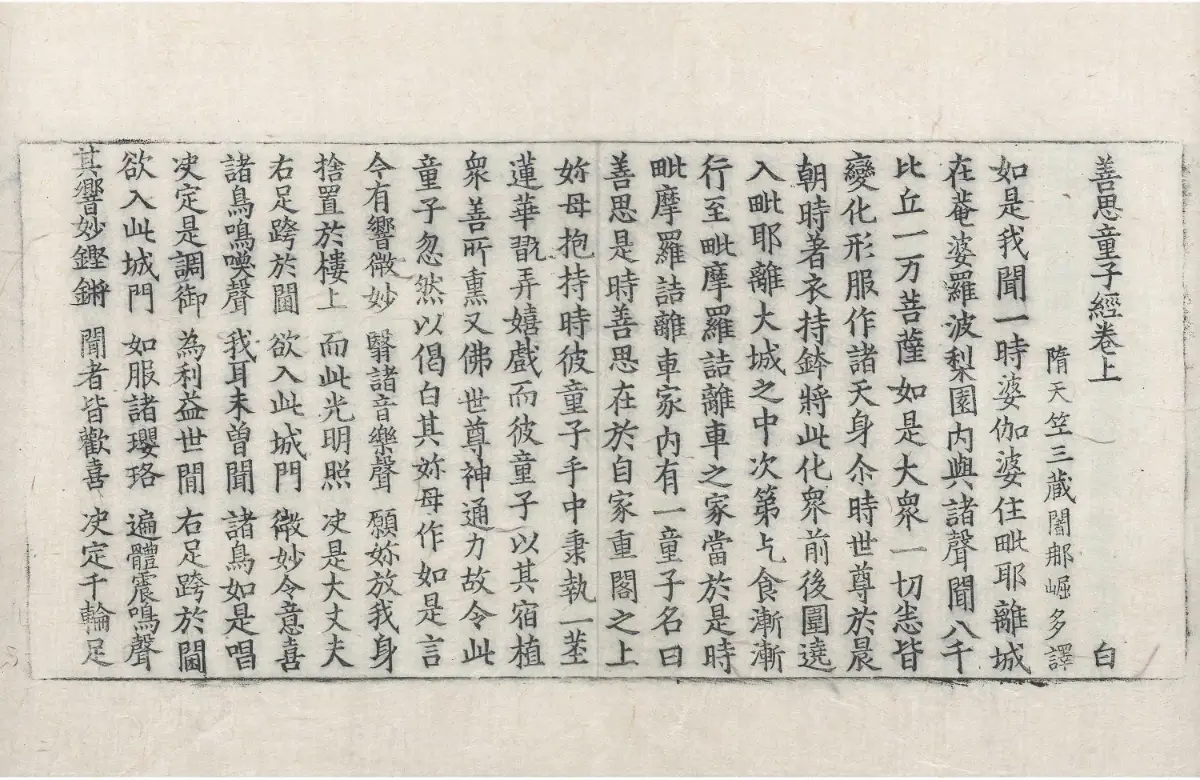 善思童子經卷上 白
隋天竺三藏闍那崛多譯
如是我聞一時婆伽婆住毗耶離城
在菴婆羅波梨園內與諸聲聞八千
比丘一万菩薩如是大衆一切悉皆
變化形服作諸天身尒時世尊於晨
朝時著衣持鉢將此化衆前後圍遶
入毗耶離大城之中次第乞食漸漸
行至毗摩羅詰離車之家當於是時
毗摩羅詰離車家內有一童子名曰
善思是時善思在於自家重閣之上
妳母抱持時彼童子手中秉執一莖
蓮華翫弄嬉戲而彼童子以其宿植
衆善所熏又佛世尊神通力故令此
童子忽然以偈白其妳母作如是言
今有響微妙 翳諸音樂聲 願妳放我身
捨置於樓上 而此光明照 决是大丈夫
右足跨於閫 欲入此城門 微妙令意喜
諸鳥鳴喚聲 我耳未曾聞 諸鳥如是唱
决定是調御 為利益世間 右足跨於閫
欲入此城門 如服諸瓔珞 遍體震鳴聲
其響妙鏗鏘 聞者皆歡喜 决定千輪足